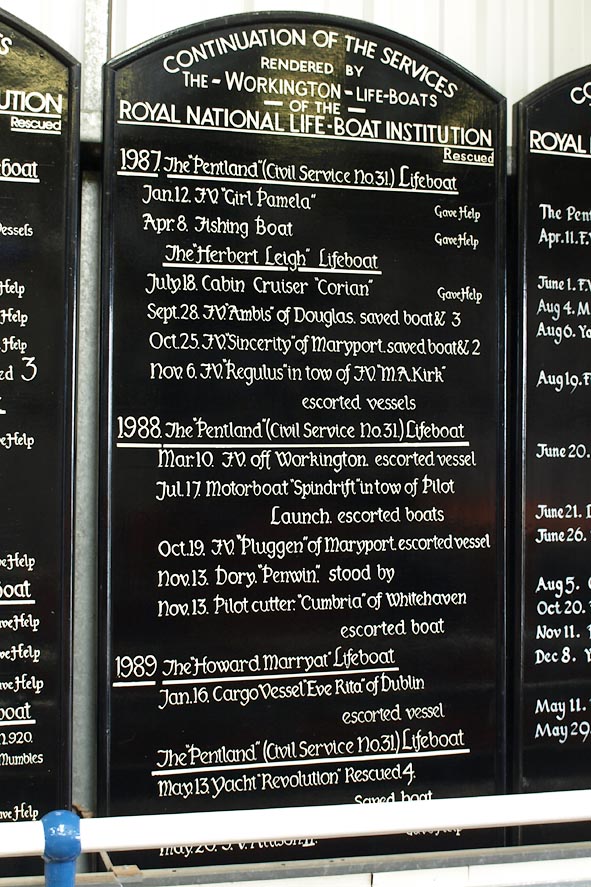 CONTINUATION OF THE SERVICES
RENDERED BY
THE-WORKINGTON-LIFE-BOATS
— OF THE —
ROYAL NATIONAL LIFE-BOAT INSTITUTION
Rescued
1987 The "Pentland" (Civil Service No.31.) Lifeboat
Jan.12. F.V. "Girl Pamela"
Gave Help
Apr.8. Fishing Boat
Gave Help
The "Herbert Leigh" Lifeboat
July.18. Cabin Cruiser "Corian"
Gave Help
Sept.28. F.V. "Ambis" of Douglas. saved boat & 3
Oct.25. F.V. "Sincerity" of Maryport. saved boat & 2
Nov.6. F.V. "Regulus" in tow of F.V. "M.A.Kirk"
escorted vessels
1988 The "Pentland" (Civil Service No.31.) Lifeboat
Mar.10. F.V. off Workington. escorted vessel
Jul.17. Motorboat "Spindrift" in tow of Pilot
Launch. escorted boats
Oct.19. F.V. "Pluggen" of Maryport. escorted vessel
Nov.13. Dory. "Penwin." stood by
Nov.13. Pilot cutter. "Cumbria" of Whitehaven
escorted boat
1989 The "Howard Marryat" Lifeboat
Jan.16. Cargo Vessel "Eve Rita" of Dublin
escorted vessel
The "Pentland" (Civil Service No.31.) Lifeboat
May.13. Yacht "Revolution" Rescued 4.
Saved boat
Gave Help
May.20. F.V.
UTION
Rescued
boat
Vessels
Help
Help
Help
3
Gave Help
Gave Help
boat
Gave Help
Gave Help
Gave Help
boat
1.920.
Mumbles
Gave Help
ROYAL
The Pent
Apr.11. F.V.
June 1. F.V
Aug 4. M
Aug 6. Yo
Aug 19. F
June 20.
June 21.
June 26.
Aug 5.
Oct 20.
Nov 11.
Dec 8. Y
May 11.
May 29.